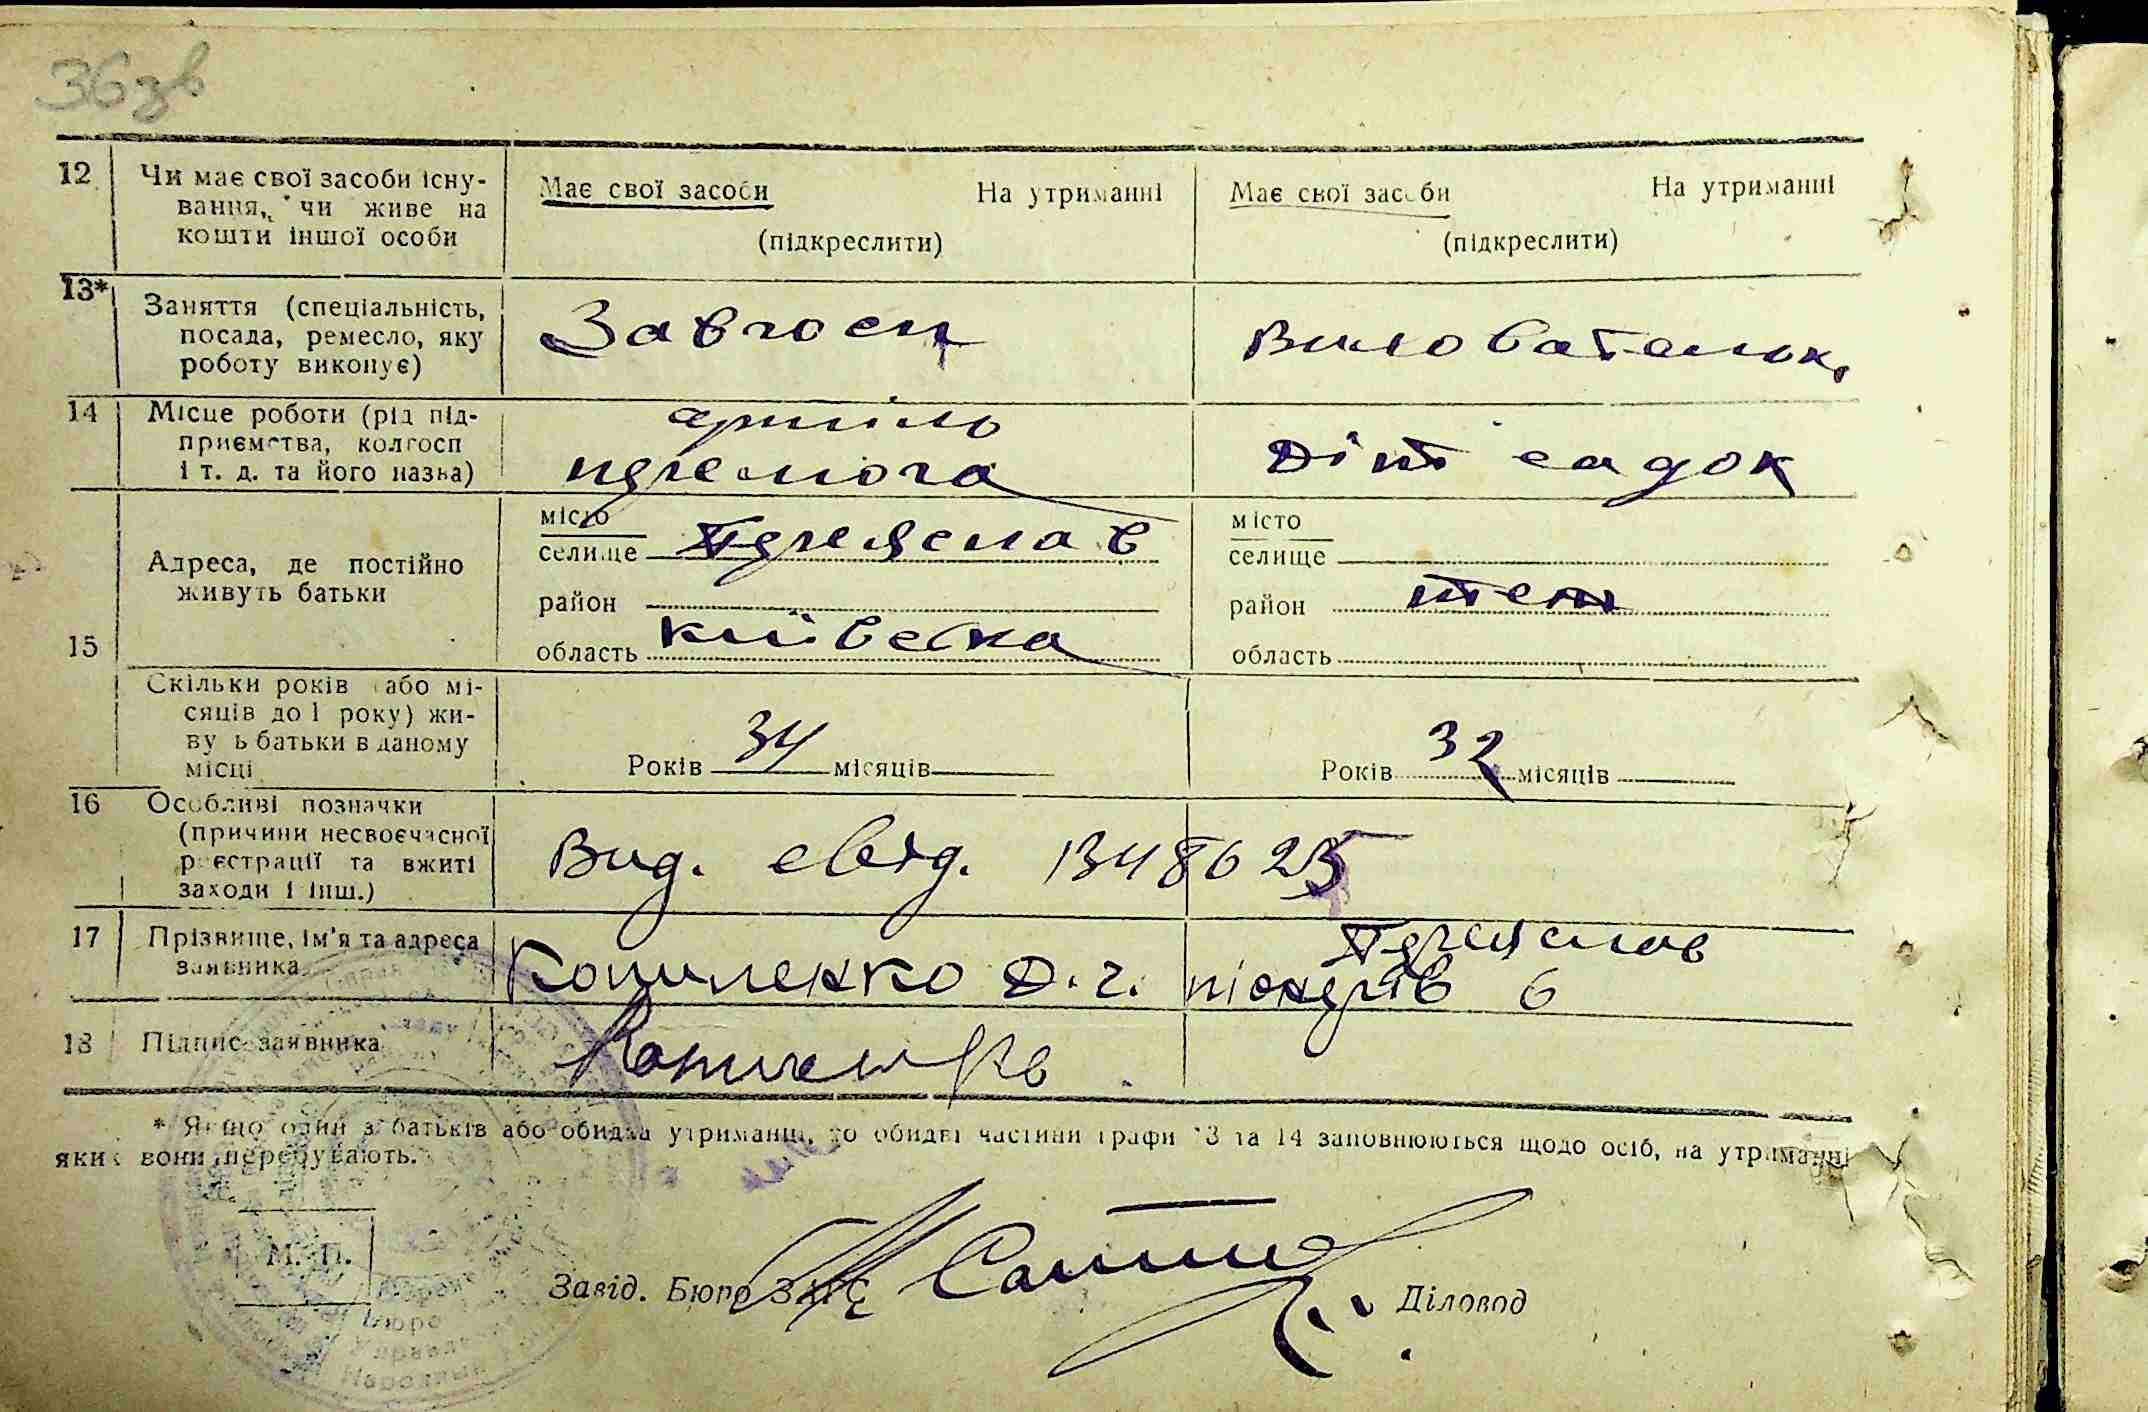 36 зв
12 Чи має свої засоби існу-
вання, чи живе на
кошти іншої особи
Має свої засоби На утриманні
(підкреслити)
Має свої засоби На утриманні
(підкреслити)
13* Заняття (спеціальність,
посада, ремесло, яку
роботу виконує)
Завгосп
Виховательк.
14 Місце роботи (рід під-
приємства, колгосп
і т. д. та його назва)
артіль
перемога
Діт садок
15
Адреса, де постійно
живуть батьки
місто
селище Переяслав
район
область Київська
місто
селище
район теж
область
Скільки років (або мі-
сяців до 1 року) жи-
ву ь батьки в даному
місці
Років 34 місяців
Років 32 місяців
16 Особливі позначки
(причини несвоєчасної
реєстрації та вжиті
заходи і інш.)
Вид. свід. 1348625
17 Прізвище, ім'я та адреса
заявника
Копиленко Д. г. Переяслав
піонерів 6
18 Підпис заявника
Копиленко
* Якщо один з батьків або обидва утриманці, то обидві частини графи 13 та 14 заповнюються щодо осіб, на утриманні
яких вони перебувають.
М. П.
Завід. Бюро ЗАГС
Діловод
Бюро